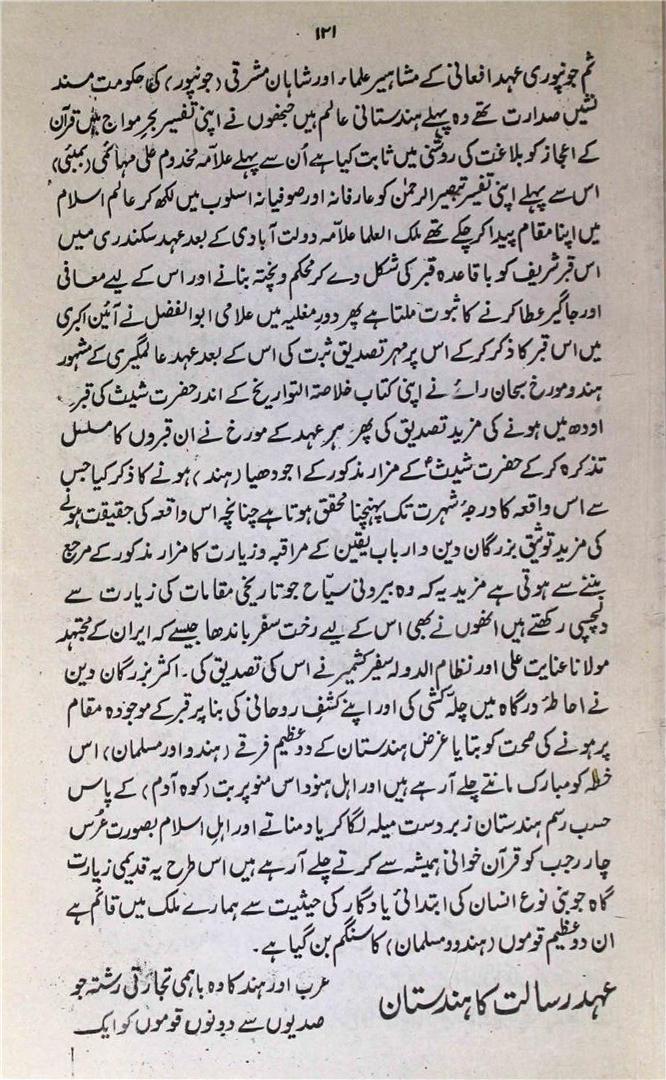 ۱۲۱
ثم جونپوری عہد افغانی کے مشاہیر علماء اور شاہان مشرقی (جونپور) کی حکومت مسند
نشیں صدارت تھے وہ پہلے ہندستانی عالم ہیں جنھوں نے اپنی تفسیر بحر مواج میں قرآن
کے اعجاز کو بلاغت کی روشنی میں ثابت کیا ہے اُن سے پہلے علامہ مخدوم علی مہائمی (بمبئی)
اس سے پہلے اپنی تفسیر تبصیر الرحمٰن کو عارفانہ اور صوفیانہ اسلوب میں لکھ کر عالم اسلام
میں اپنا مقام پیدا کر چکے تھے ملک العلما علامہ دولت آبادی کے بعد عہد سکندری میں
اس قبر شریف کو باقاعدہ قبر کی شکل دے کر محکم و پختہ بنانے اور اس کے لیے معافی
اور جاگیر عطا کرنے کا ثبوت ملتا ہے پھر دور مغلیہ میں علامی ابوالفضل نے آئین اکبری
میں اس قبر کا ذکر کر کے اس پر مہر تصدیق ثبت کی اس کے بعد عہد عالمگیری کے مشہور
ہندو مورخ سبحان رائے نے اپنی کتاب خلاصۃ التواریخ کے اندر حضرت شیث کی قبر
اودھ میں ہونے کی مزید تصدیق کی پھر ہر عہد کے مورخ نے ان قبروں کا مسلسل
تذکرہ کر کے حضرت شیثؑ کے مزار مذکور کے اجودھیا (ہند) ہونے کا ذکر کیا جس
سے اس واقعہ کا درجۂ شہرت تک پہنچنا محقق ہوتا ہے چنانچہ اس واقعہ کی حقیقت ہونے
کی مزید توثیق بزرگان دین و ارباب یقین کے مراقبہ و زیارت کا مزار مذکور کے مرجع
بننے سے ہوتی ہے مزید یہ کہ وہ بیرونی سیّاح جو تاریخی مقامات کی زیارت سے
دلچسپی رکھتے ہیں انھوں نے بھی اس کے لیے رخت سفر باندھا جیسے کہ ایران کے مجتہد
مولانا عنایت علی اور نظام الدولہ سفیر کشمیر نے اس کی تصدیق کی۔ اکثر بزرگان دین
نے احاطۂ درگاہ میں چلہ کشی کی اور اپنے کشف روحانی کی بنا پر قبر کے موجودہ مقام
پر ہونے کی صحت کو بتایا غرض ہندستان کے دو عظیم فرقے (ہندو اور مسلمان) اس
خطہ کو مبارک مانتے چلے آرہے ہیں اور اہل ہنود اس منو پربت (کوہ آدم) کے پاس
حسب رسم ہندستان زبردست میلہ لگا کر یاد مناتے اور اہل اسلام بصورت عُرس
چار رجب کو قرآن خوانی ہمیشہ سے کرتے چلے آرہے ہیں اس طرح یہ قدیمی زیارت
گاہ جو بنی نوع انسان کی ابتدائی یادگار کی حیثیت سے ہمارے ملک میں قائم ہے
ان دو عظیم قوموں (ہندو و مسلمان) کا سنگم بن گیا ہے۔
عہد رسالت کا ہندستان
عرب اور ہند کا وہ باہمی تجارتی رشتہ جو
صدیوں سے دونوں قوموں کو ایک